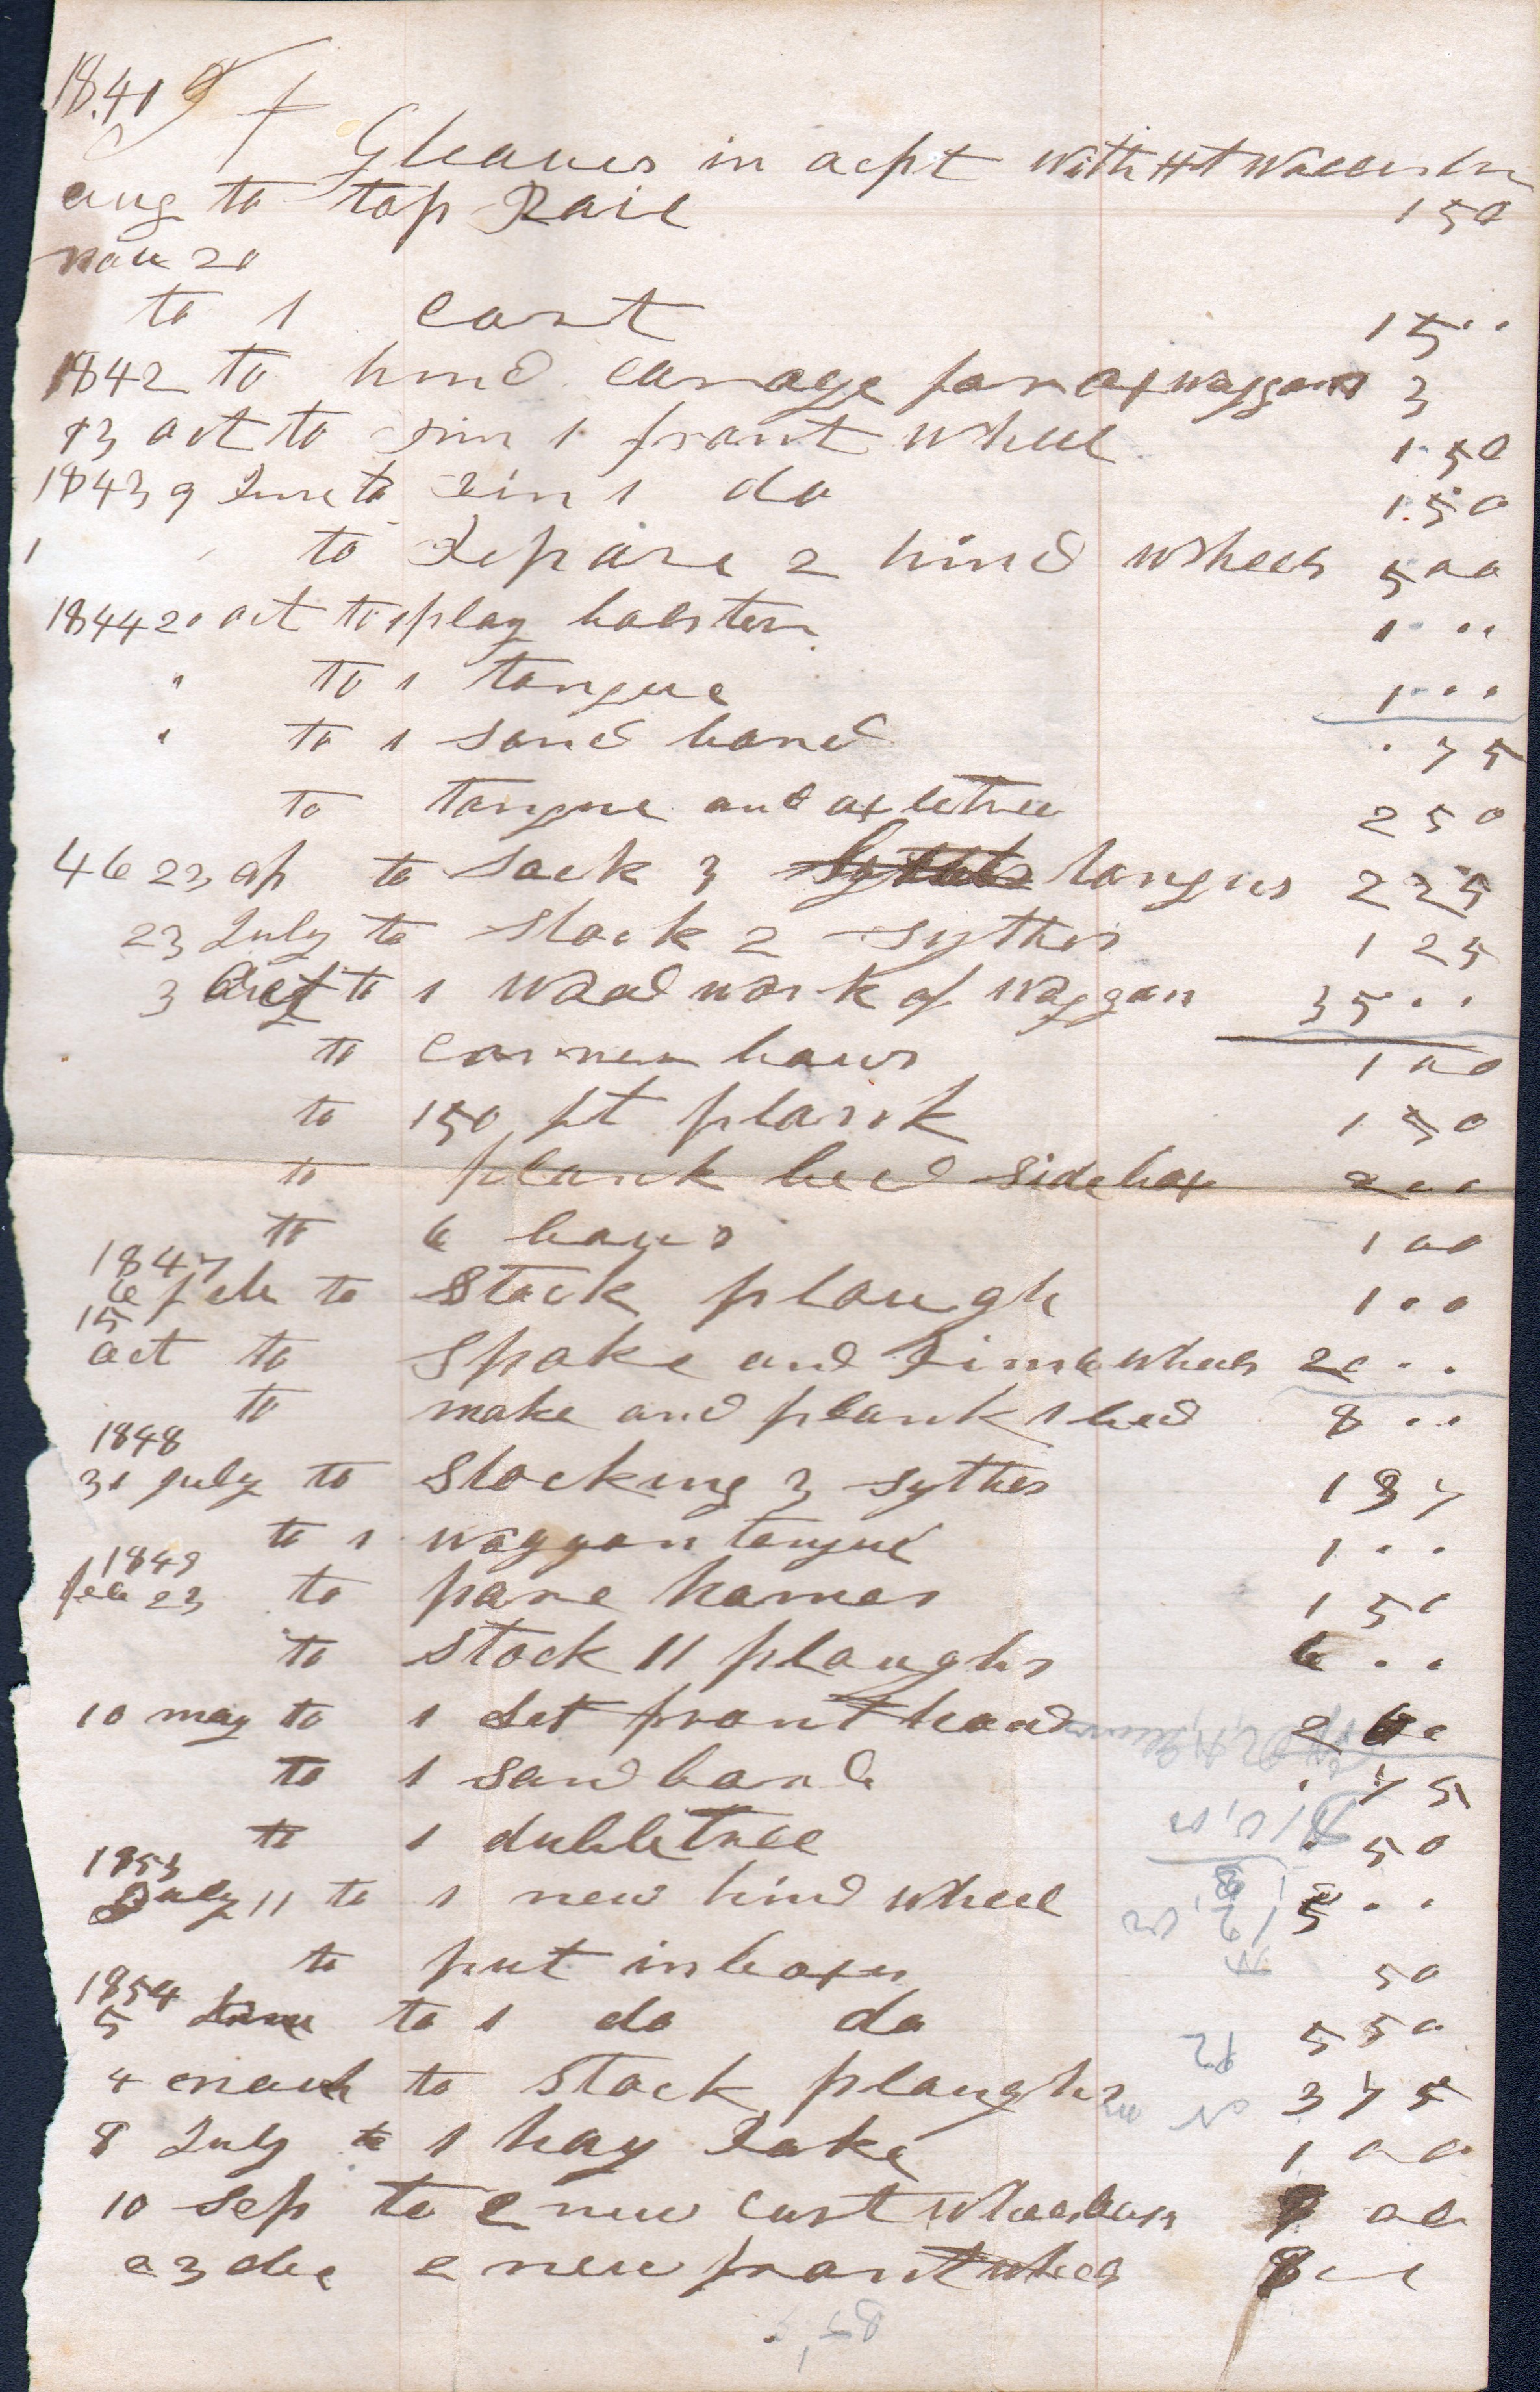 1841 Gleaves in acpt with HT
aug to top Rail 150
nov 20
to 1 cart 15..
1842 to hind carage for ox waggon 3
13 oct to rim 1 front wheel 1.50
1843 9 June to rim 1 do 1.50
1 to Repare 2 hind wheels 500
1844 20 oct to play bolster 1...
" to 1 tongue 1...
" to 1 sand band .75
to tongue and axletree 250
46 23 ap to sock 3 tongus 225
23 July to stock 2 sythes 125
3 to 1 wood work of waggon 35..
to corner baws 100
to 150 ft plank 150
to plank bed side box 200
to 6 baws 100
1847
6 feb to stock plough 1..
15
oct to spoke and Rim 6 wheels 20..
to make and plank 1 bed 8..
1848
31 july to stocking 3 sythes 137
to 1 waggon tongue 1..
1849
feb 23 to pare hames 150
to stock 11 ploughs 6..
10 may to 1 set front 2
to 1 sand band .75
to 1 dubletree .50
1853
July 11 to 1 new hind wheel 5..
to put in boxes 50
1854
5 June to 1 do do 550
4 march to stock ploughs 375
8 July to 1 hay Rake 100
10 sep to 2 new cart wheels
23 dec 2 new front wheels